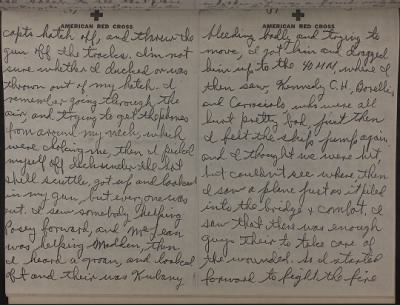 AMERICAN RED CROSS
capts hatch off, and threw the
gun off the tracks. I'm not
sure whether I ducked or was
thrown out of my hatch. I
remember going through the
air, and trying to get the phones
from around my neck, which
were choking me, then I picked
myself off deck under the hot
shell scuttle, got up and looked
in my gun, but everyone was
out. I saw somebody helping
Posey forward, and McLean
was helping then
I heard a groan, and looked
aft and their was Kubany
AMERICAN RED CROSS
bleeding badly and trying to
move, I got him and dragged
him up to the 40 MM, where I
then saw Kennedy C.H,
and who were all
hurt pretty bad, just then
I felt the ship jump again
and I thought we were hit
but couldn't see where then
I saw a plane just as it piled
into the bridge & combat, I
saw that there was enough
guys their to take care of
the wounded. So I started
forward to fight the fire